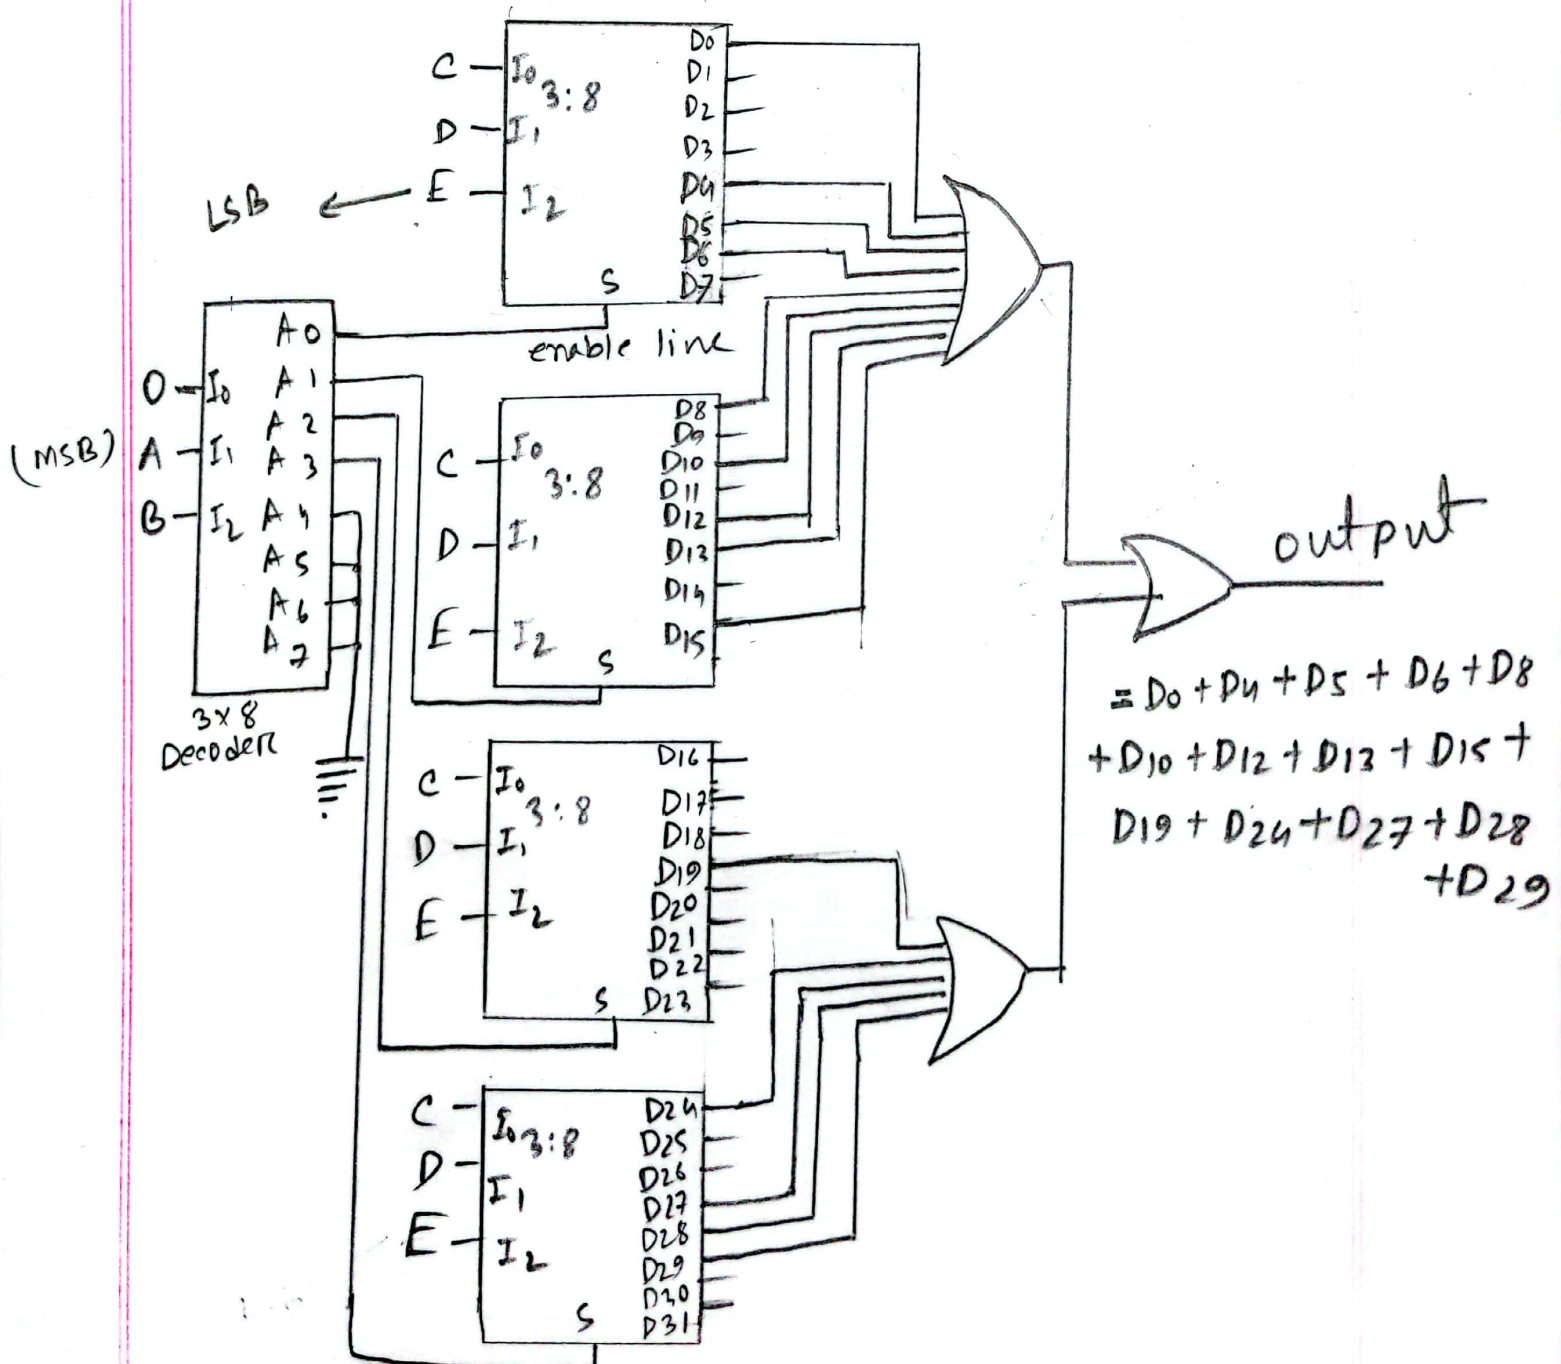 C
I0
3:8
D
I1
LSB
E
I2
S
D0
D1
D2
D3
D4
D5
D6
D7
enable line
0
I0
(MSB) A
I1
B
I2
A0
A1
A2
A3
A4
A5
A6
A7
3x8
Decoder
C
I0
3:8
D
I1
E
I2
S
D8
D9
D10
D11
D12
D13
D14
D15
C
I0
3:8
D
I1
E
I2
S
D16
D17
D18
D19
D20
D21
D22
D23
C
I0
3:8
D
I1
E
I2
S
D24
D25
D26
D27
D28
D29
D30
D31
output
= D0 + D4 + D5 + D6 + D8
+ D10 + D12 + D13 + D15 +
D19 + D24 + D27 + D28
+ D29